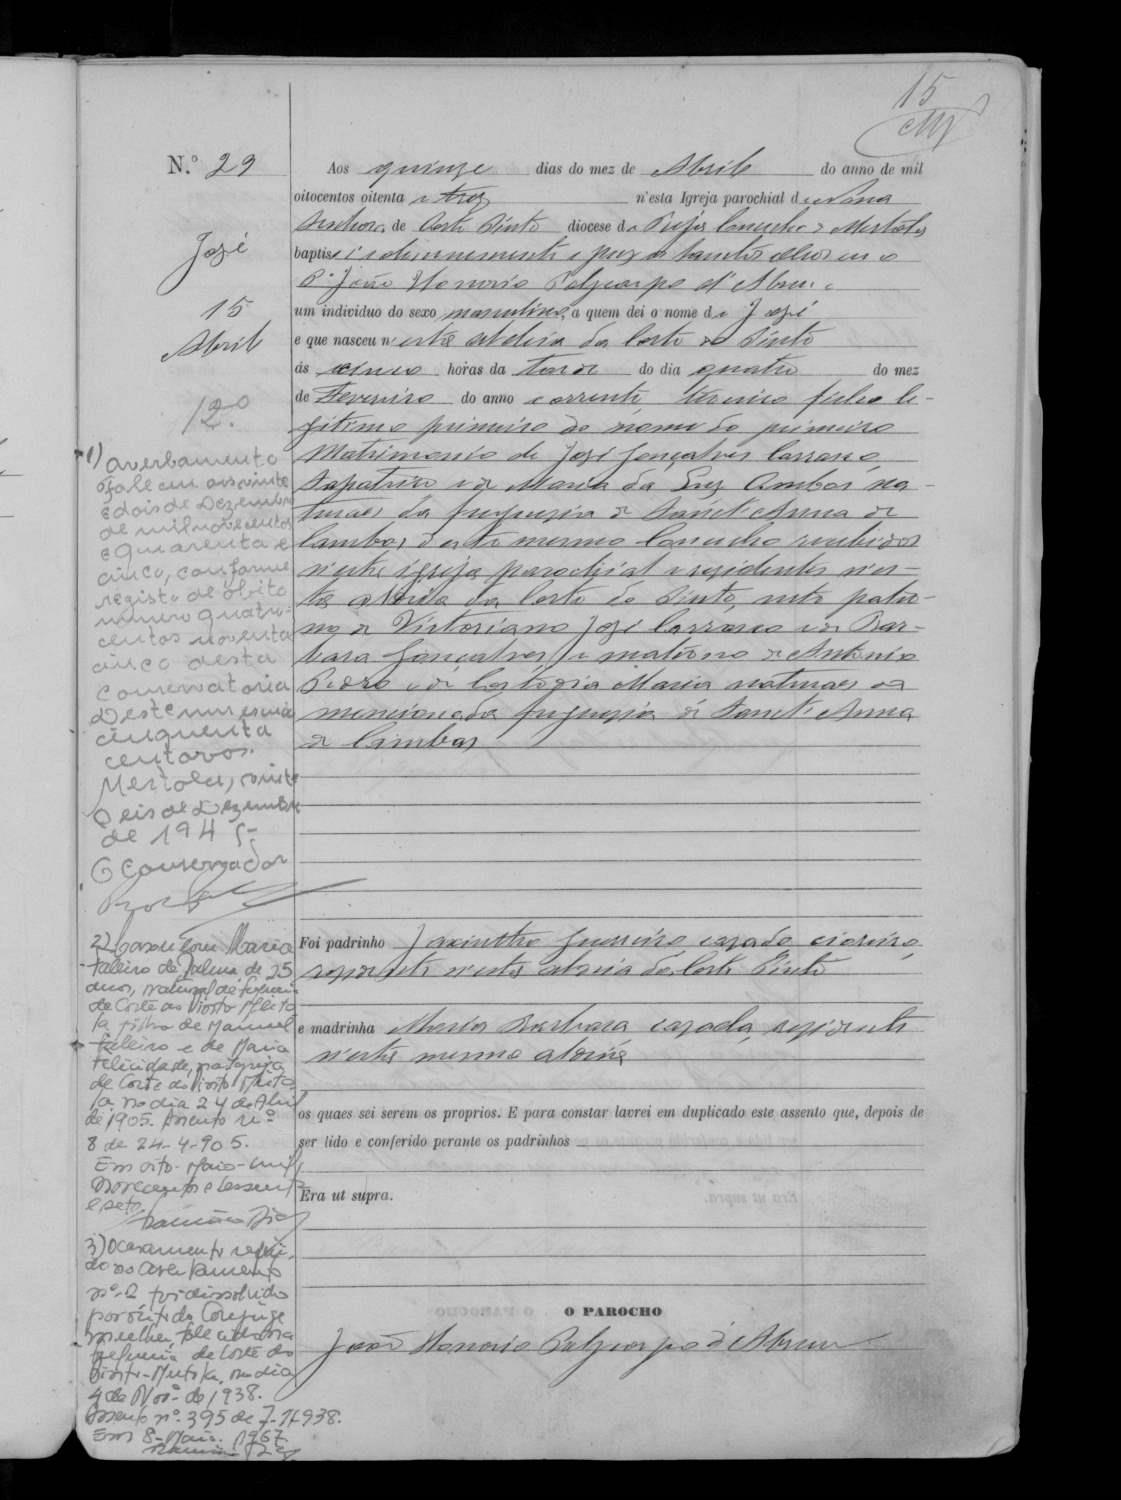 15
N.º 29
José
15
Abril
12.º
Aos quinze dias do mez de Abril do anno de mil
oitocentos oitenta e trez n'esta Igreja parochial de Nossa
Senhora de Corte Pinto diocese de Concelho de Mertola
baptisei solemnemente e puz os Santos Oleos eu o
P. João Honorio Polycarpo d'Abreu
um individuo do sexo masculino, a quem dei o nome de José
e que nasceu n'esta aldeia da Corte do Pinto
ás cinco horas da tarde do dia quatro do mez
de Fevereiro do anno corrente, terceiro filho le-
gitimo primeiro do nome do primeiro
Matrimonio de José Gonçalves Carrasco,
Sapateiro e de Maria da Luz Ambos na-
turaes da freguezia de Sanct'Anna de
Cambas, deste mesmo Concelho recebidos
n'esta igreja parochial e residentes n'es-
ta aldeia da Corte do Pinto, neto pater-
no de Victoriano José Carrasco e de Bar-
bara Gonçalves, e materno de Antonio
Pedro e de Custodia Maria naturaes da
mencionada freguezia de Sanct'Anna
de Cambas
Foi padrinho Jacintho Guerreiro cazado
rezidente n'esta aldeia da Corte Pinto
e madrinha Maria Barbara cazada, rezidente
n'esta mesma aldeia
os quaes sei serem os proprios. E para constar lavrei em duplicado este assento que, depois de
ser lido e conferido perante os padrinhos
Era ut supra.
O PAROCHO
João Honorio Polycarpo d'Abreu
1) Averbamento
Faleceu aos vinte
e dois de Dezembro
de mil novecentos
e quarenta e
cinco, conforme
registo de óbito
numero quatro-
centos noventa
cinco desta
Conservatoria
Deste um escudo
cinquenta
centavos.
Mertola, vinte
seis de Dezembro
de 1945-
O Conservador
2) Casou com Maria
Faleiro de Palma de 25
anos, natural da freguesia
de Corte do Pinto Merto
la filha de Manuel
Faleiro e de Maria
Felicidade, na igreja
de Corte do Pinto Merto-
la no dia 24 de Abril
de 1905. Assento nº
8 de 24-4-905.
Em oito-Maio-mil
novecentos e sessenta
e sete.
3) O casamento referi-
do no averbamento
nº 2 foi dissolvido
por óbito do Conjuge
mulher, falecida na
freguesia de Corte do
Pinto-Mertola, no dia
4 de Novº de 1938.
Assento nº 395 de 7-11-938.
Em 8-Maio-1967.